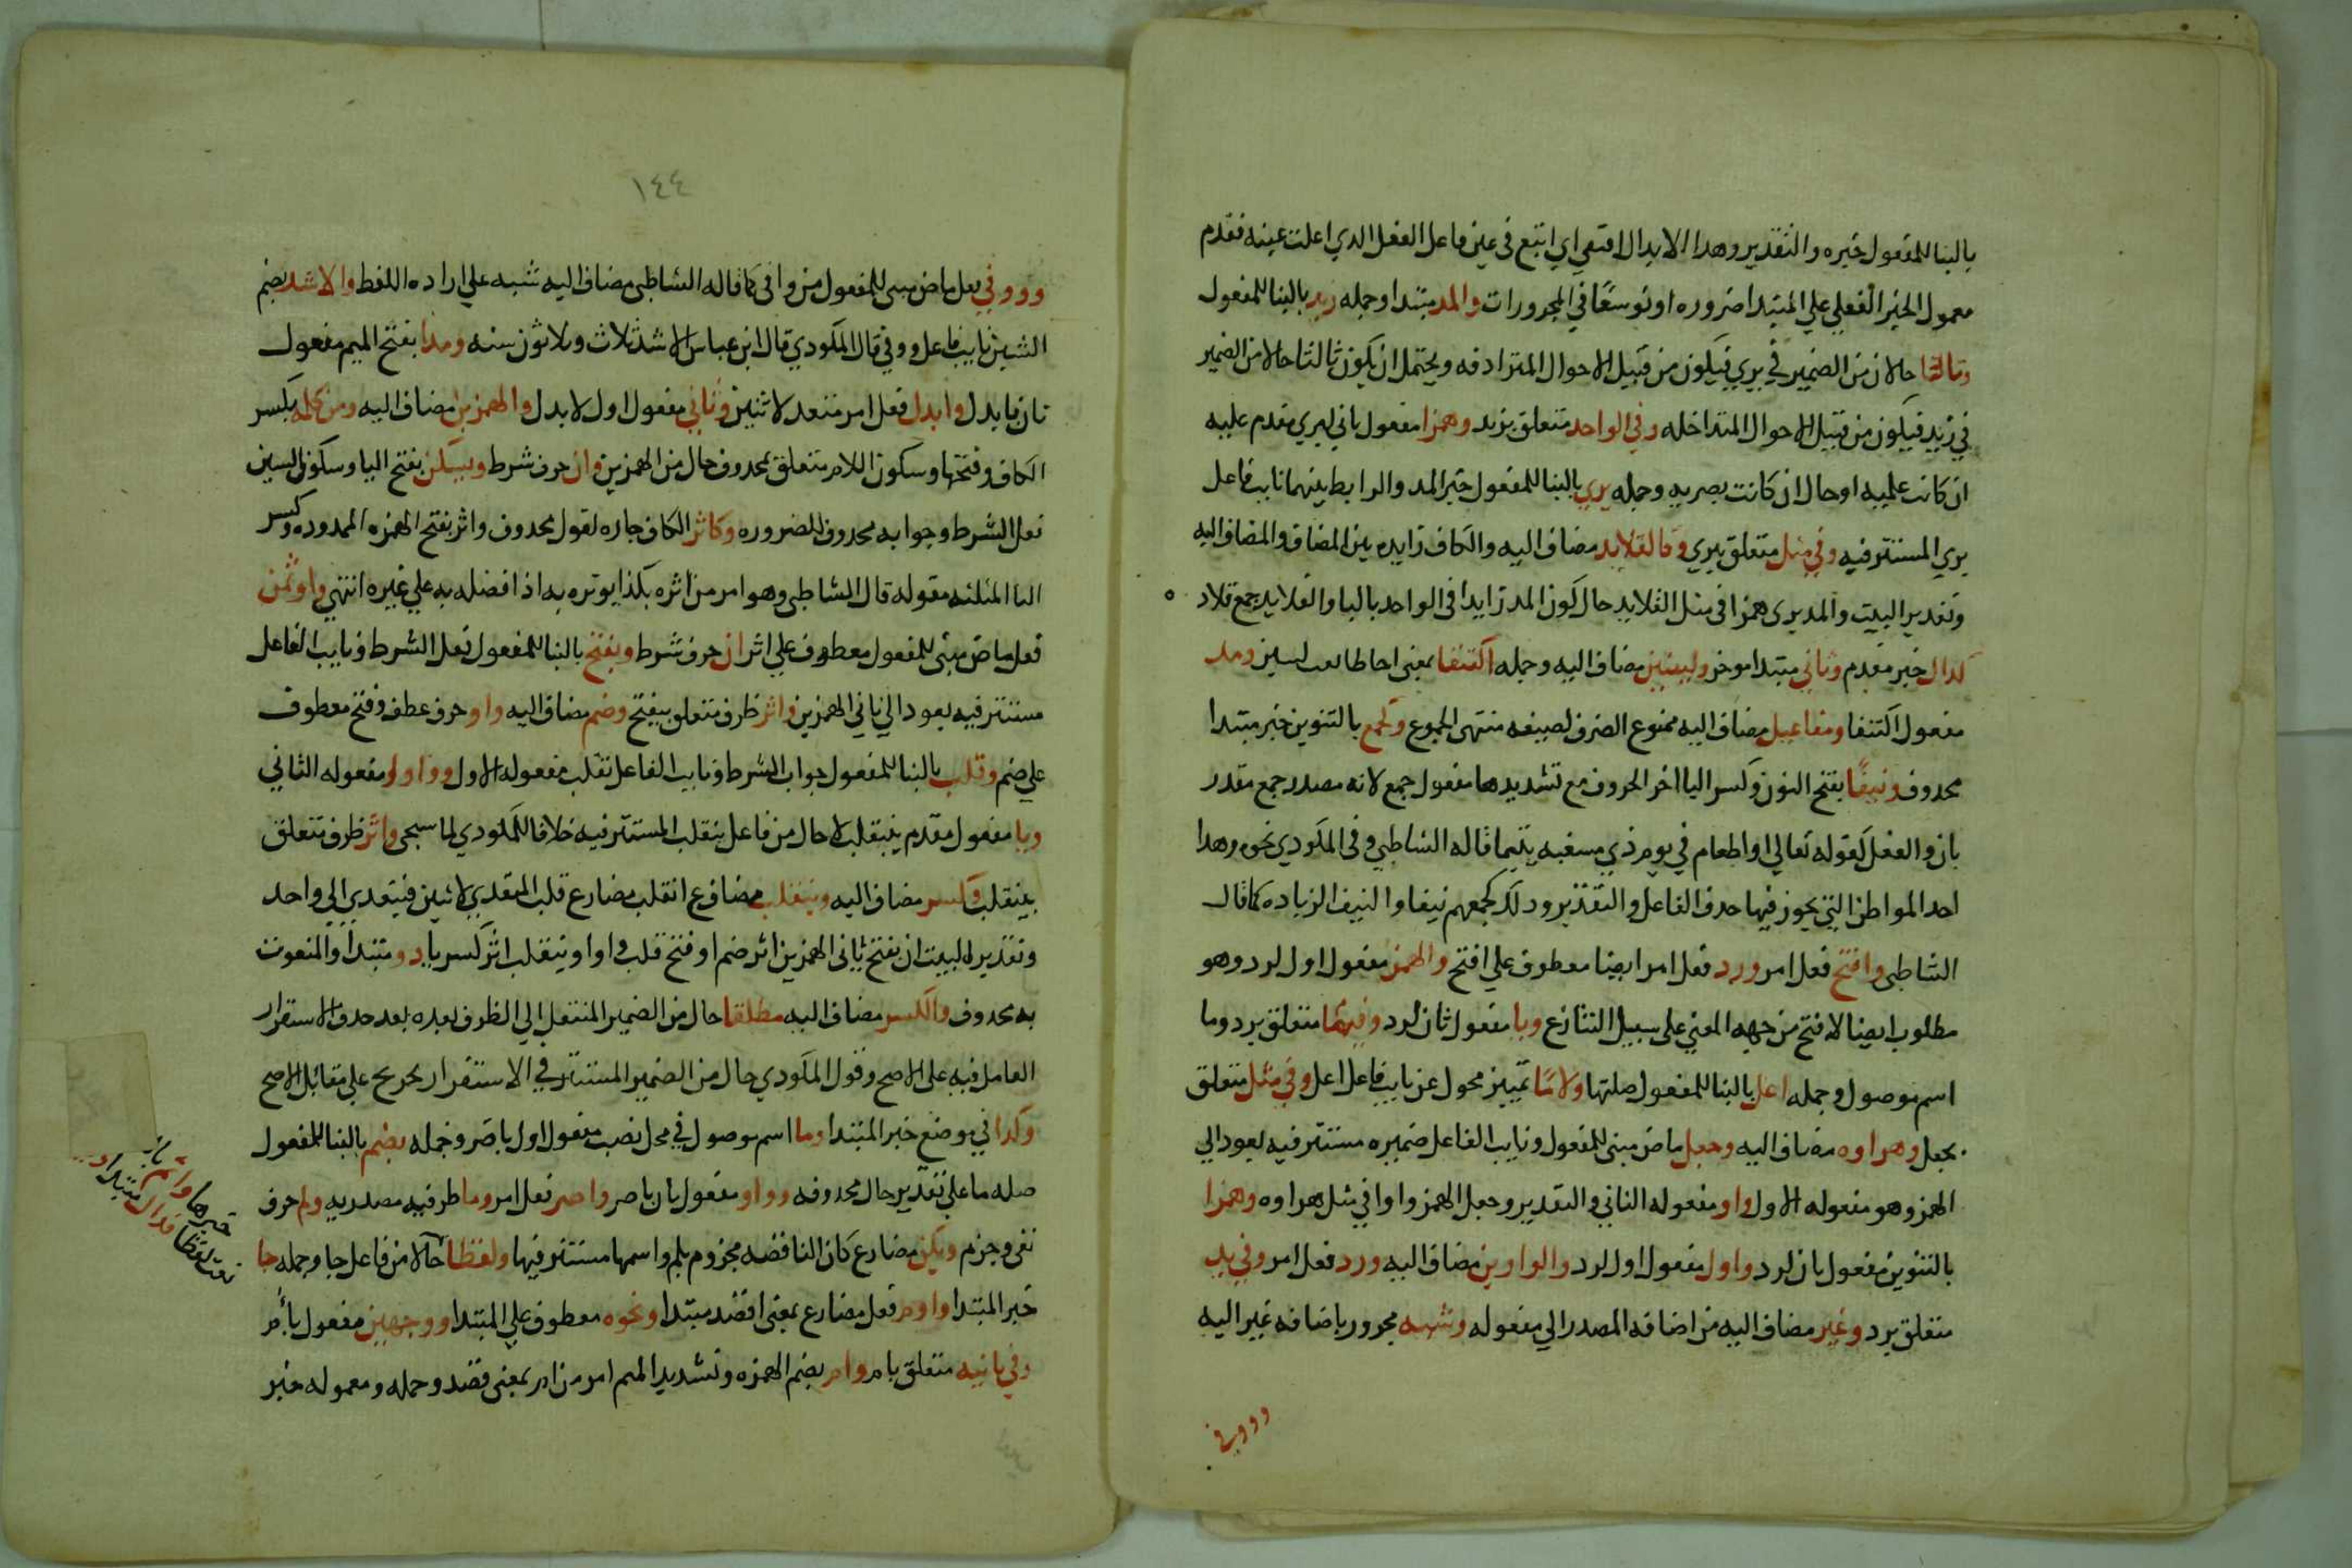 بالبنا للمفعول خبره والتقدير وهدا الابدال اقتفي اي اتبع في عين فاعل الفعل الدي اعلت عينه فقدم
معمول الخبر الفعلي علي المبتدا ضروره او توسعًا في المجرورات والمد مبتدا وجمله زيد بالبنا للمفعول
وثالثا حالان من الضمير في يري فيكون من قبيل الاحوال المترادفه ويحتمل ان يكون ثالثا حالا من الضمير
في زيد فيكون من قبيل الاحوال المتداخله وفي الواحد متعلق بزيد وهمزا مفعول ثاني ليري مقدم عليه
ان كانت علميه او حال ان كانت بصريه وجمله يري بالبنا للمفعول خبر المد والرابط بينهما نايب فاعل
يري المستتر فيه وفي مثل متعلق بيري وكالقلايد مضاف اليه والكاف زايده بين المضاف والمضاف اليه
وتقدير البيت والمد يري همزا في مثل القلايد حال كون المد زايدا في الواحد بالبا والقلايد جمع قلاده
كدال خبر مقدم وثاني مبتدا موخر ولينين مضاف اليه وجمله اكتنفا بمعني احاطا نعت لينين ومد
مفعول اكتنفا ومفاعيل مضاف اليه ممنوع الصرف لصيغه منتهي الجموع وكجمع بالتنوين خبر مبتدا
محدوف ونيفًا بفتح النون وكسر اليا اخر الحروف مع تشديدها مفعول جمع لانه مصدر جمع مقدر
بان والفعل كقوله تعالي او اطعام في يوم ذي مسغبه يتيما قاله الشاطبي وفي المكودي نحوه وهدا
احد المواطن التي يجوز فيها حدف الفاعل والتقدير ودلك كجمعهم نيفا والنيف الزياده كما قال
الشاطبي وافتح فعل امر ورد فعل امر ايضا معطوف علي افتح والهمز مفعول اول لرد وهو
مطلوب ايضا لافتح من جهه المعني علي سبيل التنازع ويا مفعول ثان لرد وفيما متعلق برد وما
اسم موصول وجمله اعل بالبنا للمفعول صلتها ولامًا تمييز محول عن نايب فاعل اعل وفي مثل متعلق
بجعل وهراوه مضاف اليه وجعل ماض مبني للمفعول ونايب الفاعل ضميره مستتر فيه يعود الي
الهمز وهو مفعوله الاول واو مفعوله الثاني والتقدير وجعل الهمز واوا في مثل هراوه وهمزا
بالتنوين مفعول ثان لرد واول مفعول اول لرد والواوين مضاف اليه ورد فعل امر وفي بد
متعلق برد وغير مضاف اليه من اضافه المصدر الي مفعوله وشبه مجرور باضافه غير اليه
ووفي
١٤٤
ووفي فعل ماض مبني للمفعول من وافي كما قاله الشاطبي مضاف اليه شبه علي اراده اللفظ والاشد بضم
الشين نايب فاعل ووفي قال المكودي قال ابن عباس الاشد ثلاث وثلاثون سنه ومدا بفتح الميم مفعول
ثان بابدل وابدل فعل امر متعد لاثنين وثاني مفعول اول لابدل والهمزين مضاف اليه ومن كلمه بكسر
الكاف وفتحها وسكون اللام متعلق بمحدوف حال من الهمزين وان حرف شرط ويسكن بفتح اليا وسكون السين
فعل الشرط وجوابه محدوف للضروره وكاثر الكاف جاره لقول محدوف واثر بفتح الهمزه الممدوده وكسر
الثا المثلثه مقوله قال الشاطبي وهو امر من اثره بكذا يوثره به اذا فضله به علي غيره انتهي واوتمن
فعل ماض مبني للمفعول معطوف علي اثر ان حرف شرط ويفتح بالبنا للمفعول فعل الشرط ونايب الفاعل
مستتر فيه يعود الي ثاني الهمزين واثر ظرف متعلق بيفتح وضم مضاف اليه واو حرف عطف وفتح معطوف
علي ضم وقلب بالبنا للمفعول جواب الشرط ونايب الفاعل بقلب مفعوله الاول وواوا مفعوله الثاني
ويا مفعول مقدم بينقلب لا حال من فاعل ينقلب المستتر فيه خلافا للمكودي لما سيجي واثر ظرف متعلق
بينقلب وكسر مضاف اليه وينقلب مضارع انقلب مضارع قلب المتعدي لاثنين فيتعدي الي واحد
وتقدير البيت ان يفتح ثاني الهمزين اثر ضم او فتح قلب واوا وينقلب اثر كسر يا دو مبتدا والمنعوت
به محدوف والكسر مضاف اليه مطلقا حال من الضمير المنتقل الي الظرف بعده بعد حدف الاستقرار
العامل فيه علي الاصح وقول المكودي حال من الضمير المستتر في الاستقرار تخريج علي مقابل الاصح
وكدا في موضع خبر المبتدا وما اسم موصول في محل نصب مفعول اول باصر وجمله يضم بالبنا للمفعول
صله ما علي تقدير حال محدوفه وواو مفعول ثان باصر واصر فعل امر وما ظرفيه مصدريه ولم حرف
نفي وجزم ويكن مضارع كان الناقصه مجزوم بلم واسمها مستتر فيها ولفظا حالا من فاعل جا وجمله جا
خبر المبتدا واوم فعل مضارع بمعني اقصد مبتدا ونحوه معطوف علي المبتدا ووجهين مفعول بأم
وفي ثانيه متعلق بام وام بضم الهمزه وتشديد الميم امر من ام بمعني قصد وجمله ومعموله خبر
خبرها واتم
نعت لفظا فداك مبتدا